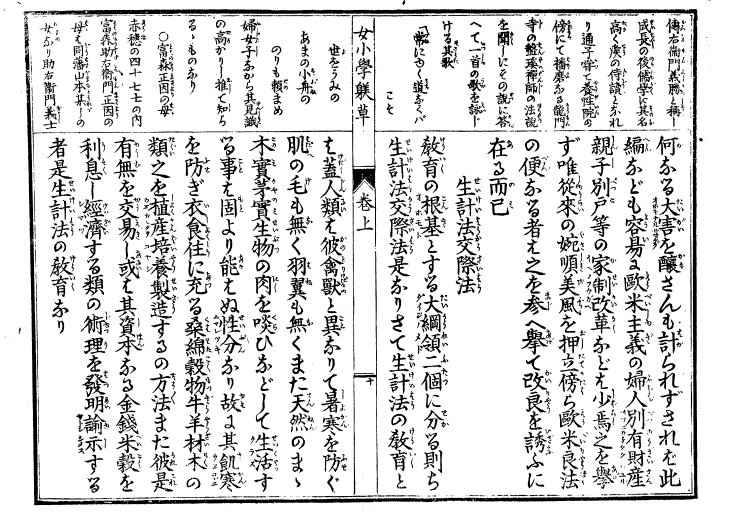 傳右衞門義勝と稱し
成長の後儒學に其名
高く廣の侍講となれ
り通子嘗て養性院の
傍にて播磨なる龍門
寺の盤珪禪師の法説
を聞しにその説に答
へて一首の歌を詠じ
ける其歌
「常にゆく道をくべバ
こそ
何なる大害を釀さんも計られずされば此
編なども容易に歐米主義の婦人別有財産
親子別戸等の家制改革などは少焉之を擧
ず唯從來の婉順美風を押立傍ら歐米良法
の便なる者は之を參へ擧て改良を誘ふに
在る而已
生計法交際法
敎育の根基とする大綱領二個に分る則ち
生計法交際法是なりさて生計法の敎育と
女小學躾草
卷上
十
世をうみの
あまの小舟の
のりも頼まめ
婦女子ながら其見識
の高かりし推て知ら
るゝものなり
○富森正因の母
赤穗の四十七士の内
富森助右衞門正因の
母は同藩山本某しの
女なり助右衞門義士
は蓋人類は彼禽獸と異なりて暑寒を防ぐ
肌の毛も無く羽翼も無くまた天然のまゝ
木實茅實生物の肉を啖ひなどして生活す
る事は固より能はぬ性分なり故に其飢寒
を防ぎ衣食住に充る桑綿穀物牛羊材木の
類之を植産培養製造するの方法また彼是
有無を交易し或は其資本なる金錢米穀を
利息し經濟する類の術理を發明諭示する
者是生計法の敎育なり